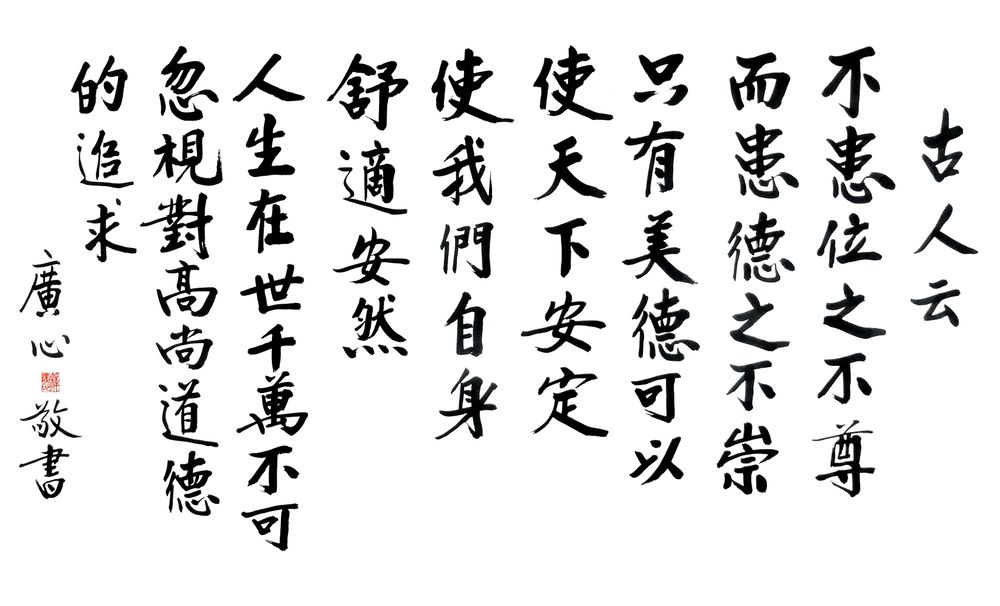 古人云
不患位之不尊
而患德之不崇
只有美德可以
使天下安定
使我們自身
舒適安然
人生在世千萬不可
忽視對高尚道德
的追求
廣心
敬書